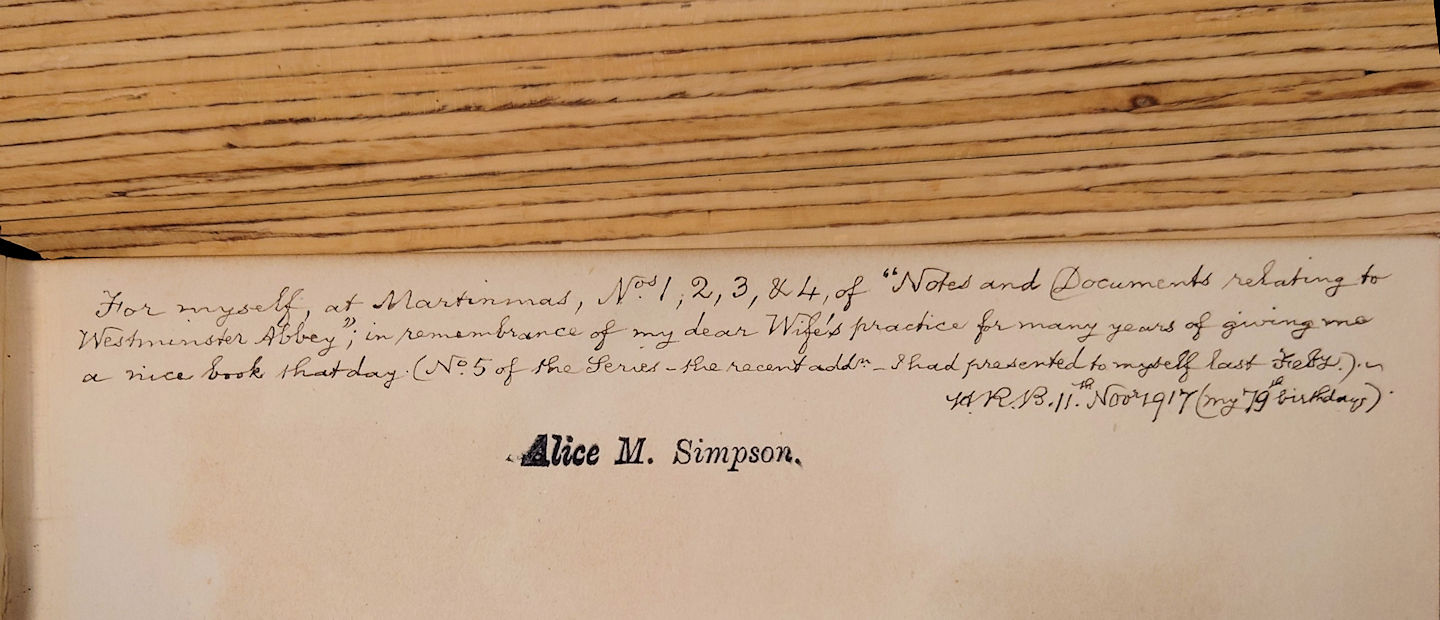 For myself, at Martinmas, Nos 1, 2, 3, & 4, of “Notes and Documents relating to
Westminster Abbey”; in remembrance of my dear Wife's practice for many years of giving me
a nice book that day. (No. 5 of the Series - the recent addn. - I had presented to myself last Feby.).
H.R.B. 11th Novr 1917 (my 79th birthday).
Alice M. Simpson.